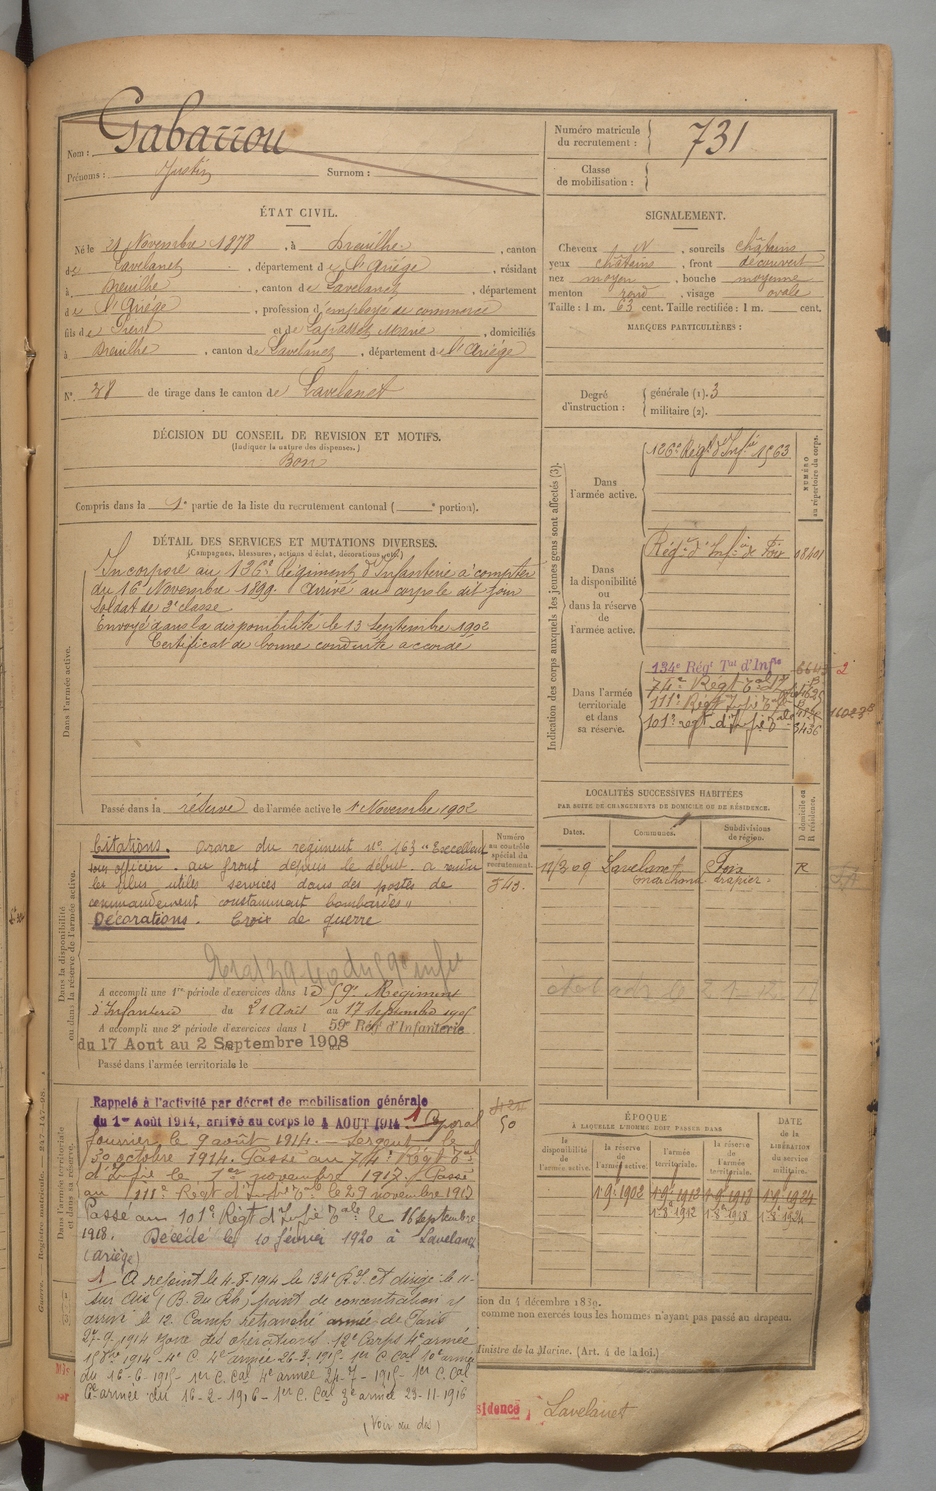 Nom : Gabarrou
Prénoms : Justin Surnom :
Numéro matricule du recrutement : 731
Classe de mobilisation :
ÉTAT CIVIL.
Né le 21 Novembre 1878, à Dreuilhe, canton
de Lavelanet, département de l'Ariège, résidant
à Dreuilhe, canton de Lavelanet, département
de l'Ariège, profession d'employé de commerce
fils de Pierre et de Lapasset, domiciliés
à Dreuilhe, canton de Lavelanet, département de l'Ariège
N° 38 de tirage dans le canton de Lavelanet
SIGNALEMENT.
Cheveux, sourcils châtains
yeux châtains, front découvert
nez moyen, bouche moyenne
menton rond, visage ovale
Taille : 1 m. 63 cent. Taille rectifiée : 1 m. cent.
MARQUES PARTICULIÈRES :
Degré d'instruction : générale (1). 3
militaire (2).
DÉCISION DU CONSEIL DE REVISION ET MOTIFS.
(Indiquer la nature des dispenses.)
Bon
Compris dans la 1e partie de la liste du recrutement cantonal ( e portion).
DÉTAIL DES SERVICES ET MUTATIONS DIVERSES.
(Campagnes, blessures, actions d'éclat, décorations, etc.)
Dans l'armée active.
Incorporé au 126e Régiment d'Infanterie à compter
du 16 Novembre 1899. Arrivé au corps le dit jour
Soldat de 2e classe
Envoyé dans la disponibilité le 13 Septembre 1902
Certificat de bonne conduite accordé
Passé dans la réserve de l'armée active le 1 Novembre 1902
Indication des corps auxquels les jeunes gens sont affectés (3).
NUMÉRO au répertoire du corps.
Dans l'armée active.
126e Régt d'Infie 1563
Dans la disponibilité ou dans la réserve de l'armée active.
Régt d'Infie de Foix
Dans l'armée territoriale et dans sa réserve.
134e Régt Tal d'Infie
74e Régt Tal
111e Régt Infie Tal
101e regt d'Infie Tale 3436
LOCALITÉS SUCCESSIVES HABITÉES
PAR SUITE DE CHANGEMENTS DE DOMICILE OU DE RÉSIDENCE.
Dates. Communes. Subdivisions de région. D domicile ou R résidence.
Lavelanet Foix R
marchand drapier
Dans la disponibilité ou dans la réserve de l'armée active.
Numéro au contrôle spécial du recrutement.
Citations. ordre du régiment n° 163 "Excellent
sous officier. au front depuis le début. a rendu
les plus utiles services dans des postes de
commandement constamment bombardés"
Décorations. Croix de guerre
A accompli une 1re période d'exercices dans le 59e Régiment
d'Infanterie du 21 Avril au 17
A accompli une 2e période d'exercices dans l 59e Rég d'Infanterie
du 17 Aout au 2 Septembre 1908
Passé dans l'armée territoriale le
Dans l'armée territoriale et dans sa réserve.
Rappelé à l'activité par décret de mobilisation générale
du 1er Août 1914, arrivé au corps le 4 AOUT 1914 1 Caporal
fourrier le 9 août 1914. Sergent le
30 octobre 1914. Passé au 74e Régt Tal
d'Infie le 1er novembre 1917. Passé
au 111e Régt d'Infie Tale le 29 novembre 1917
Passé au 101e Régt d'Infie Tale le 16 Septembre
1918. Décédé le 10 février 1920 à Lavelanet
(Ariège)
50
1 A rejoint le 4-8-1914 le 134e R.I. et dirigé le 11
sur Aix (B. du Rh) point de concentration y
arrivé le 12 Camp retranché armée de Paris
27-9-1914 Zone des opérations 12e Corps 4e armée
1914 - 4e C. 4e armée 26-3-1915 - 1er C Cal 10e armée
du 16-6-1915 - 1er C. Cal 4e armée 24-7-1915 - 1er C. Cal
6e armée du 16-2-1916 - 1er C. Cal 3e armée 23-11-1916
(Voir au dos)
ÉPOQUE
À LAQUELLE L'HOMME DOIT PASSER DANS
la disponibilité de l'armée active. la réserve de l'armée active. l'armée territoriale. la réserve de l'armée territoriale.
DATE de la LIBÉRATION du service militaire.
1.9.1902
tion du 4 décembre 1830.
comme non exercés tous les hommes n'ayant pas passé au drapeau.
Ministre de la Marine. (Art. 4 de la loi.)
sidence
Lavelanet